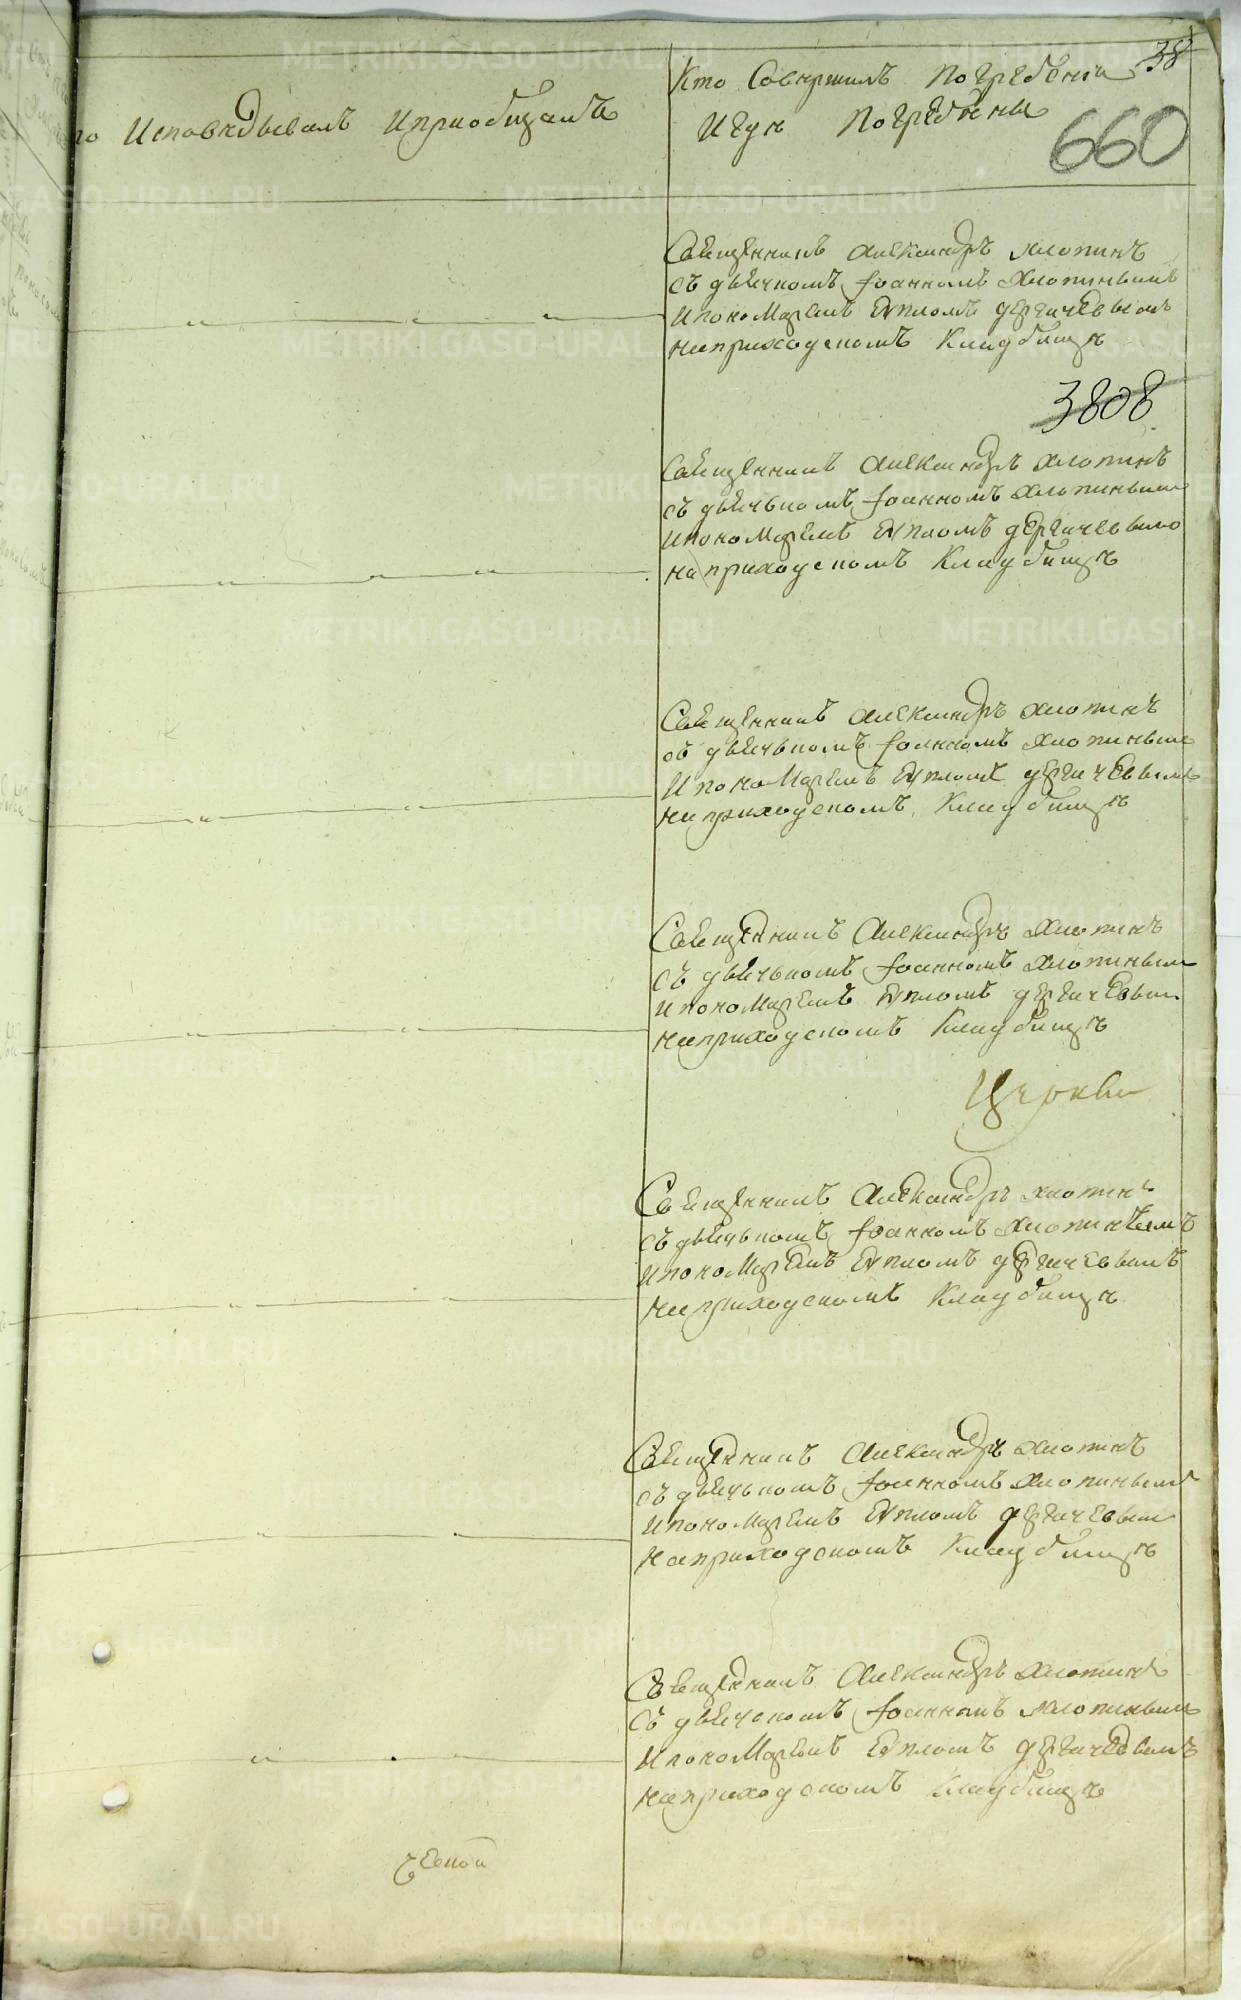 38
Кто Совершилъ погребенїе
Исповедывалъ Иприобщалъ
Игде Погребены
660
Священникъ Александръ Хлопинъ
съ дьячкомъ Іоанномъ Хлопинымъ
ипономаремъ Еѵпломъ дергачевымъ
наприходскомъ Кладбище
3808
Священникъ Александръ Хлопинъ
съ дьячькомъ Іоанномъ Хлопинымъ
ипономаремъ Еѵпломъ дергачевымъ
наприходскомъ Кладбище
Священникъ Александръ Хлопинъ
съ дьячькомъ Іоанномъ Хлопинымъ
ипономаремъ Еѵпломъ дергачевымъ
наприходскомъ Кладбище
Священникъ Александръ Хлопинъ
съ дьячькомъ Іоанномъ Хлопинымъ
ипономаремъ Еѵпломъ дергачевым
наприходскомъ Кладбище
Церкви
Священникъ Александръ Хлопинъ
съ дьячькомъ Іоанномъ Хлопинымъ
ипономаремъ Еѵпломъ дергачевымъ
наприходскомъ Кладбище
Священникъ Александръ Хлопинъ
съ дьячькомъ Іоанномъ Хлопинымъ
ипономаремъ Еѵпломъ дергачевым
наприходскомъ Кладбище
Священникъ Александръ Хлопинъ
съ дьячкомъ Іоанномъ Хлопинымъ
ипономаремъ Еѵпломъ дергачевымъ
наприходскомъ Кладбище
METRIKI.GASO-URAL.RU